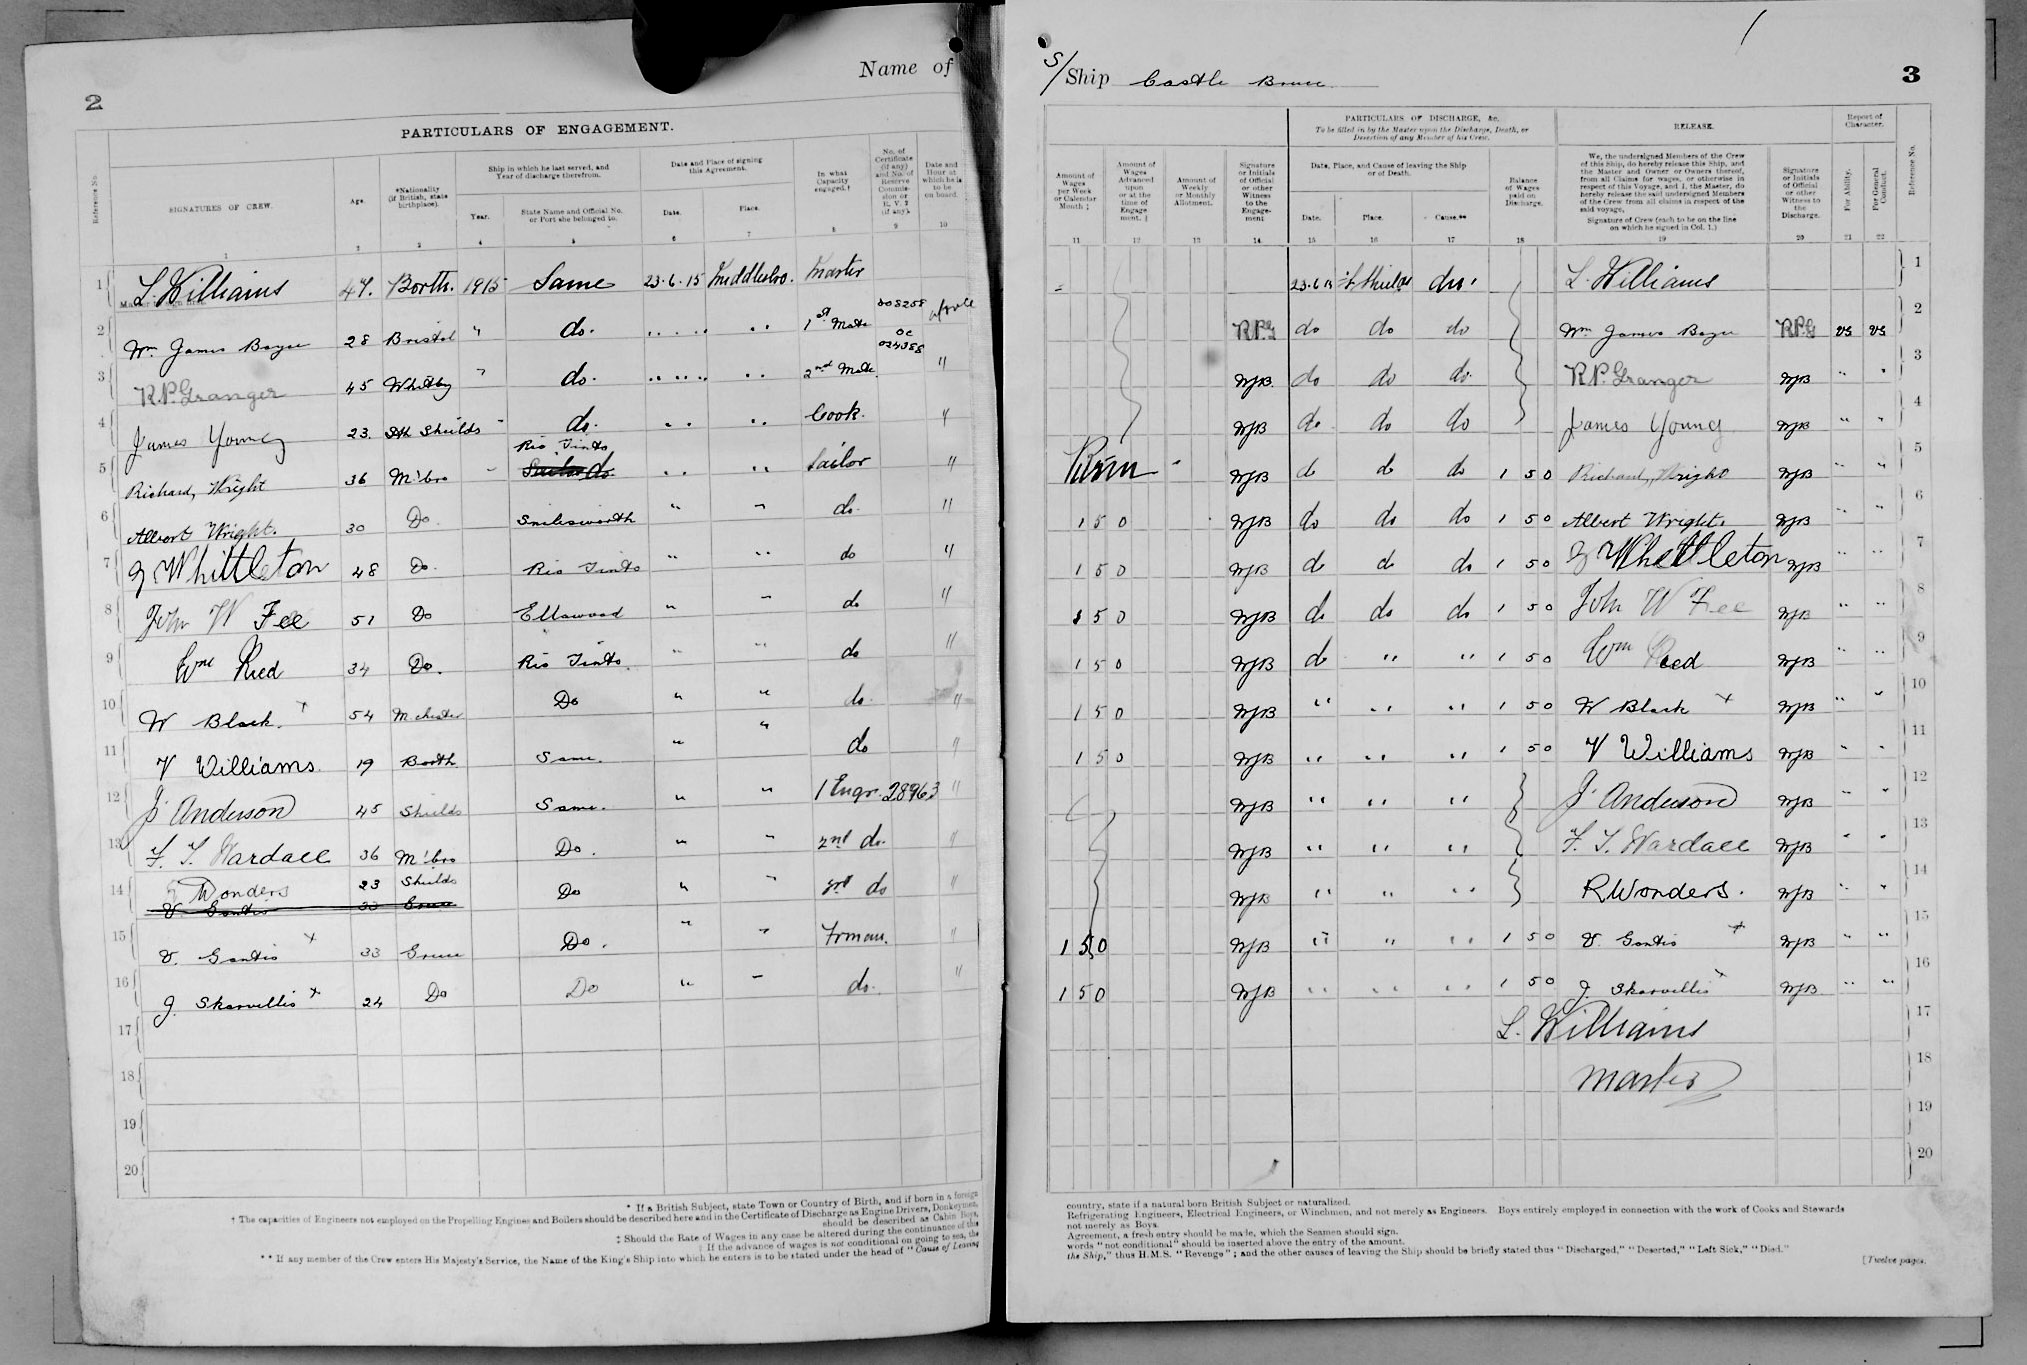 2
Name of
PARTICULARS OF ENGAGEMENT.
Reference No.
SIGNATURES OF CREW.
Age.
*Nationality (if British, state birthplace).
Ship in which he last served, and Year of discharge therefrom.
Year.
State Name and Official No. or Port she belonged to.
Date and Place of signing this Agreement.
Date.
Place.
In what Capacity engaged.†
No. of Certificate (if any) and No. of Reserve Commission or R. V. 2 (if any).
Date and Hour at which he is to be on board.
1 2 3 4 5 6 7 8 9 10
1 L. Williams 47. Borth. 1915 Same 23.6.15 Middlesbro. Master
2 Wm James Bayee 28 Bristol " do. " " " " " 1st Mate 008258
3 R.P. Granger 45 Whitby " do. " " " " " 2nd Mate oc 024388 "
4 James Young 23. Sth Shields " do. " " " " Cook. "
5 Richard, Wright 36 M'bro " Rio Tinto do " " " " Sailor "
6 Albert Wright. 30 Do. Snilesworth " " do. "
7 Whittleton 48 Do. Rio Tinto " " do "
8 John W Fee 51 Do Ellswood " " do "
9 Wm Reed 34 Do. Rio Tinto. " " do "
10 W Black. x 54 Mchester Do " " do. "
11 V Williams. 19 Borth Same. " " do "
12 J. Anderson 45 Shields Same. " " 1 Engr. 28963 "
13 F. T. Wardale 36 M'bro Do. " " 2nd do. "
14 Wonders 23 Shields Do " " 3rd do "
V Gontis 33 Greece
15 V. Gontis x 33 Greece Do. " " Frman. "
16 J. Skarvellis x 24 Do Do " " do. "
17
18
19
20
* If a British Subject, state Town or Country of Birth, and if born in a foreign
† The capacities of Engineers not employed on the Propelling Engines and Boilers should be described here and in the Certificate of Discharge as Engine Drivers, Donkeymen,
should be described as Cabin Boys,
‡ Should the Rate of Wages in any case be altered during the continuance of this
| If the advance of wages is not conditional on going to sea, the
** If any member of the Crew enters His Majesty's Service, the Name of the King's Ship into which he enters is to be stated under the head of "Cause of Leaving
S/Ship Castle Bruce.
3
Amount of Wages per Week or Calendar Month ‡
Amount of Wages Advanced upon or at the time of Engagement. |
Amount of Weekly or Monthly Allotment.
Signature or Initials of Official or other Witness to the Engagement
PARTICULARS OF DISCHARGE, &c.
To be filled in by the Master upon the Discharge, Death, or Desertion of any Member of his Crew.
Date, Place, and Cause of leaving the Ship or of Death.
Date.
Place.
Cause.**
Balance of Wages paid on Discharge.
RELEASE.
We, the undersigned Members of the Crew of this Ship, do hereby release this Ship, and the Master and Owner or Owners thereof, from all Claims for wages, or otherwise in respect of this Voyage, and I, the Master, do hereby release the said undersigned Members of the Crew from all claims in respect of the said voyage.
Signature of Crew (each to be on the line on which he signed in Col. 1.)
Signature or Initials of Official or other Witness to the Discharge.
Report of Character.
For Ability.
For General Conduct.
Reference No.
11 12 13 14 15 16 17 18 19 20 21 22
23.6.15 Shields L. Williams 1
R.P.G do do do Wm James Bayee R.P.G VG VG 2
WJB. do do do. R.P. Granger WJB " " 3
WJB do do do James Young WJB " " 4
WJB do do do 1 5 0 Richard, Wright WJB " " 5
1 5 0 WJB do do do 1 5 0 Albert Wright. WJB " " 6
1 5 0 WJB do do do 1 5 0 Whittleton WJB " " 7
1 5 0 WJB do do do 1 5 0 John W Fee WJB " " 8
1 5 0 WJB do " " 1 5 0 Wm Reed WJB " " 9
1 5 0 WJB " " " 1 5 0 W Black x WJB " " 10
1 5 0 WJB " " " 1 5 0 V Williams WJB " " 11
WJB " " " J. Anderson WJB " " 12
WJB " " " F. T. Wardale WJB " " 13
WJB " " " R Wonders. WJB " " 14
1 5 0 WJB " " " 1 5 0 V. Gontis x WJB " " 15
1 5 0 WJB " " " 1 5 0 J. Skarvellis x WJB " " 16
L. Williams 17
Master 18
19
20
country, state if a natural born British Subject or naturalized.
Refrigerating Engineers, Electrical Engineers, or Winchmen, and not merely as Engineers. Boys entirely employed in connection with the work of Cooks and Stewards
not merely as Boys.
Agreement, a fresh entry should be made, which the Seamen should sign.
words "not conditional" should be inserted above the entry of the amount.
the Ship," thus H.M.S. "Revenge"; and the other causes of leaving the Ship should be briefly stated thus "Discharged," "Deserted," "Left Sick," "Died."
[Twelve pages.